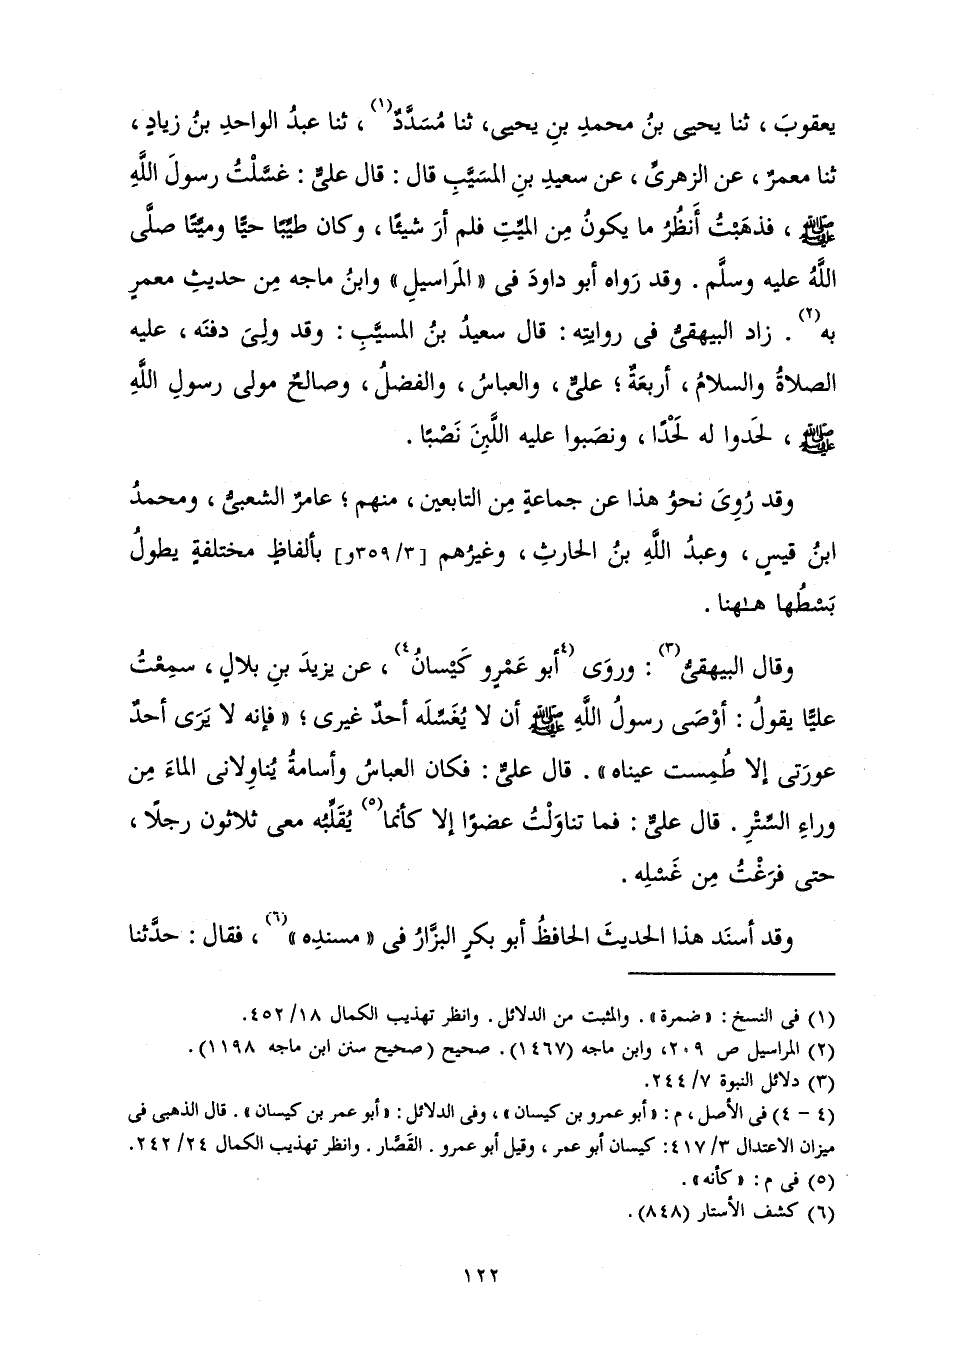 يعقوبَ ، ثنا يحيى بنُ محمدِ بنِ يحيى، ثنا مُسَدَّدٌ(١) ، ثنا عبدُ الواحدِ بنُ زيادٍ ،
ثنا معمرٌ ، عن الزهرىِّ ، عن سعيدِ بنِ المسَيَّبِ قال : قال علىٌّ : غسَّلْتُ رسولَ اللَّهِ
ﷺ ، فذهَبْتُ أَنظُرُ ما يكونُ مِن الميِّتِ فلم أرَ شيئًا ، وكان طيِّبًا حيًّا وميِّتًا صلَّى
اللَّهُ عليه وسلَّم . وقد رَواه أبو داودَ فى « المَراسيلِ » وابنُ ماجه مِن حديثِ معمرٍ
به(٢) . زاد البيهقىُّ فى روايتِه : قال سعيدُ بنُ المسيَّبِ : وقد ولِىَ دفنَه ، عليه
الصلاةُ والسلامُ ، أربعَةٌ ؛ علىٌّ ، والعباسُ ، والفضلُ ، وصالحٌ مولى رسولِ اللَّهِ
ﷺ ، لحَدوا له لَحْدًا ، ونصَبوا عليه اللَّبِنَ نَصْبًا .
وقد رُوِىَ نحوُ هذا عن جماعةٍ مِن التابعين ، منهم ؛ عامرٌ الشعبىُّ ، ومحمدُ
ابنُ قيسٍ ، وعبدُ اللَّهِ بنُ الحارثِ ، وغيرُهم [٣٥٩/٣و] بألفاظٍ مختلفةٍ يطولُ
بَسْطُها هـٰهنا .
وقال البيهقىُّ(٣) : وروَى (٤أبو عَمْرٍو كَيْسانُ٤) ، عن يزيدَ بنِ بلالٍ ، سمِعْتُ
عليًّا يقولُ : أوْصَى رسولُ اللَّهِ ﷺ أن لا يُغَسِّلَه أحدٌ غيرى ؛ « فإنه لا يَرَى أحدٌ
عورَتى إلا طُمِست عيناه » . قال علىٌّ : فكان العباسُ وأسامةُ يُناوِلانى الماءَ مِن
وراءِ السِّتْرِ . قال علىٌّ : فما تناوَلْتُ عضوًا إلا كأنما(٥) يُقَلِّبُه معى ثلاثون رجلًا ،
حتى فرَغْتُ مِن غَسْلِه .
وقد أسنَد هذا الحديثَ الحافظُ أبو بكرٍ البزَّارُ فى « مسندِه »(٦) ، فقال : حدَّثنا
(١) فى النسخ : « ضمرة » . والمثبت من الدلائل . وانظر تهذيب الكمال ١٨/ ٤٥٢.
(٢) المراسيل ص ٢٠٩، وابن ماجه (١٤٦٧) . صحيح (صحيح سنن ابن ماجه ١١٩٨) .
(٣) دلائل النبوة ٧/ ٢٤٤.
(٤ - ٤) فى الأصل ، م : « أبو عمرو بن كيسان » ، وفى الدلائل : « أبو عمر بن كيسان » . قال الذهبى فى
ميزان الاعتدال ٣/ ٤١٧: كيسان أبو عمر ، وقيل أبو عمرو . القَصَّار . وانظر تهذيب الكمال ٢٤/ ٢٤٢.
(٥) فى م : « كأنه » .
(٦) كشف الأستار (٨٤٨) .
١٢٢